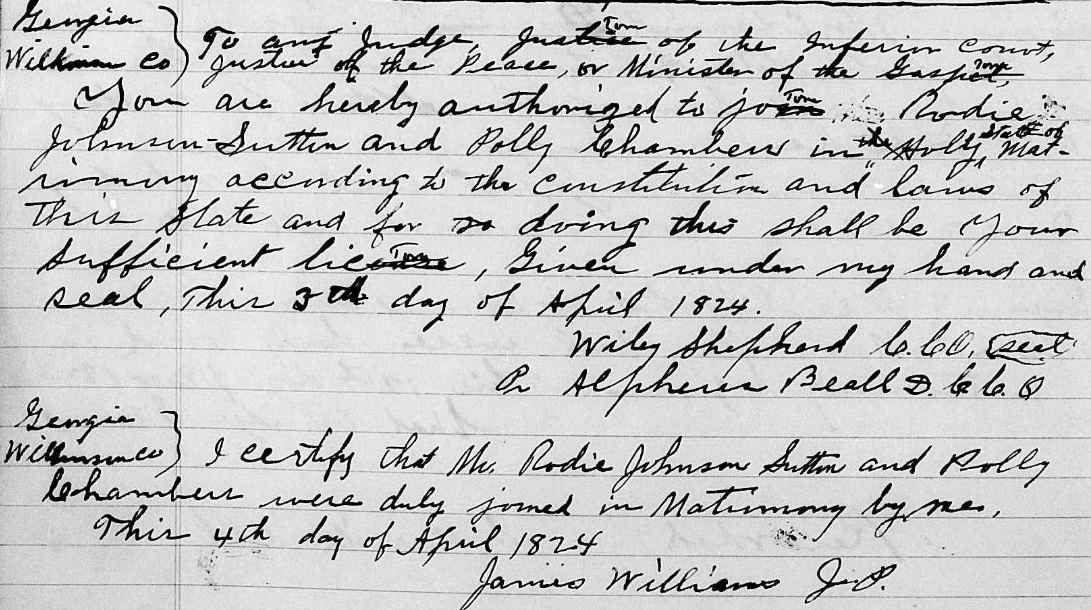 Georgia
Wilkinson Co } To any Judge, Justice of the Inferior Court,
Justice of the Peace, or Minister of the Gospel,
You are hereby authorized to join Rodie
Johnson-Sutton and Polly Chambers in the Holy State of Mat-
rimony according to the Constitution and laws of
this State and for so doing this shall be Your
sufficient license, Given under my hand and
seal, This 3th day of April 1824.
Wiley Shepherd C.C.O. seal
Pr Alpheus Beall D.C.C.O
Georgia
Wilkinson Co } I certify that Mr. Rodie Johnson Sutton and Polly
Chambers were duly joined in Matimony by me,
This 4th day of April 1824
James Williams J.P.